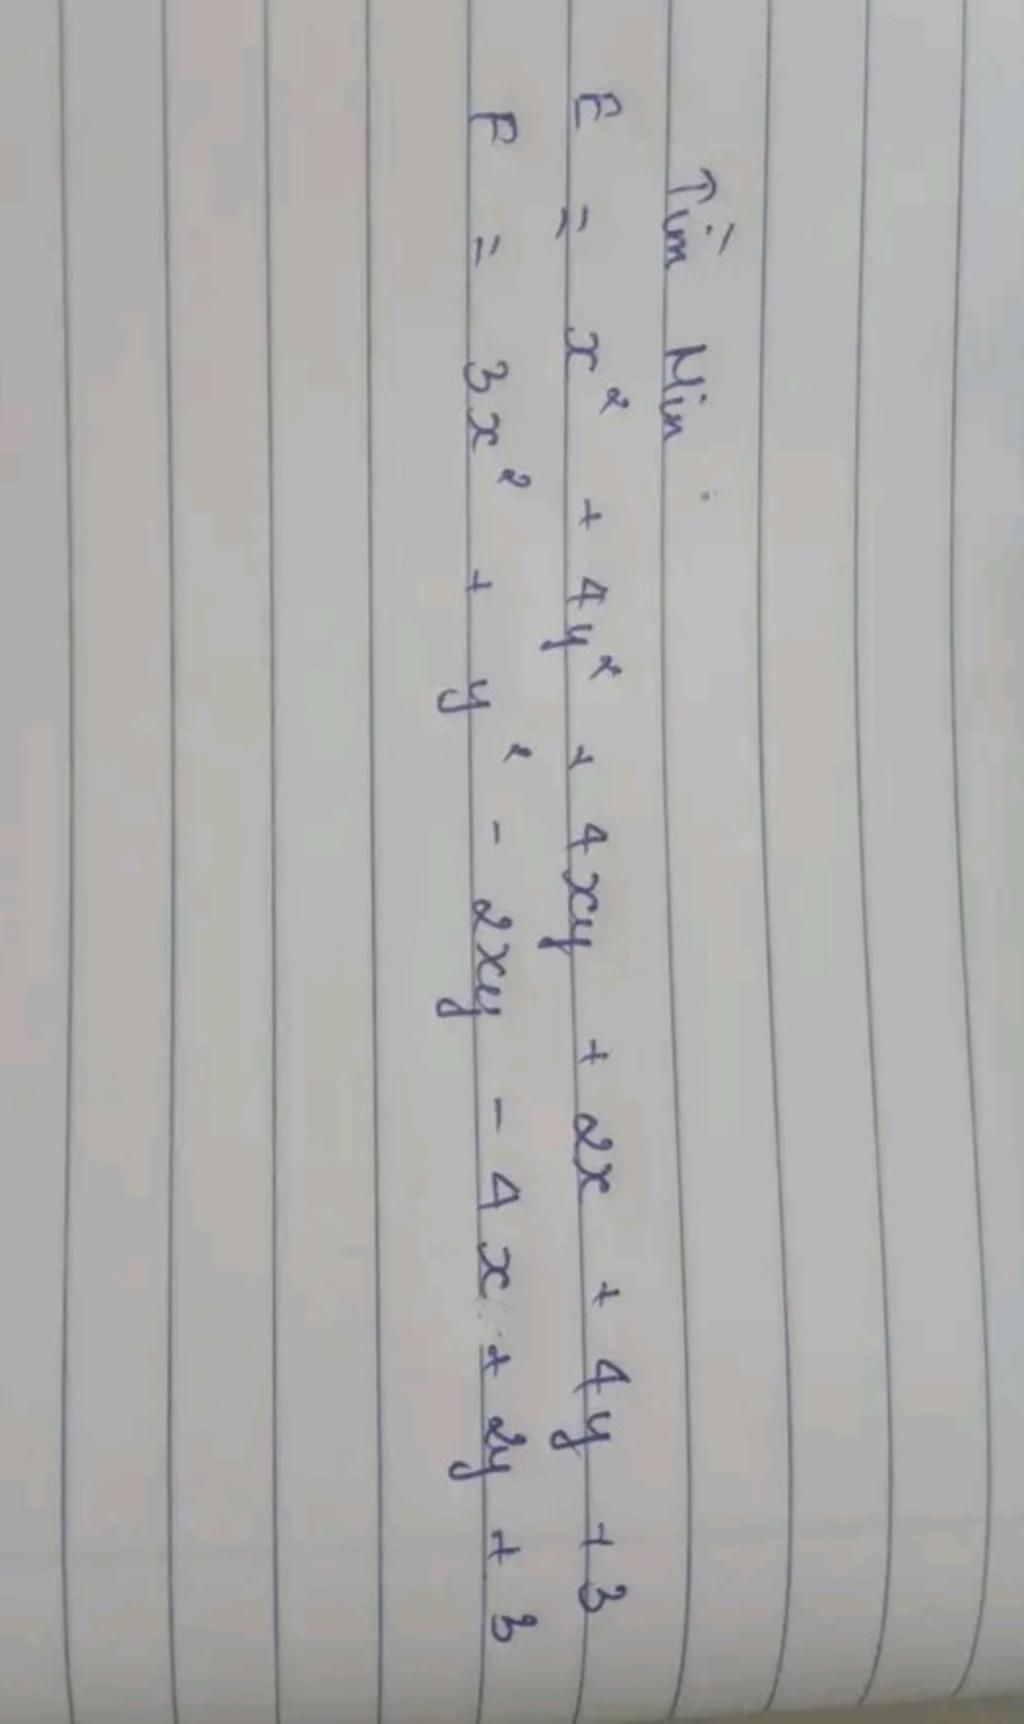 Tìm Min
E = x² + 4y² + 4xy + 2x + 4y + 3
F = 3x² + y² - 2xy - 4x + 2y + 3